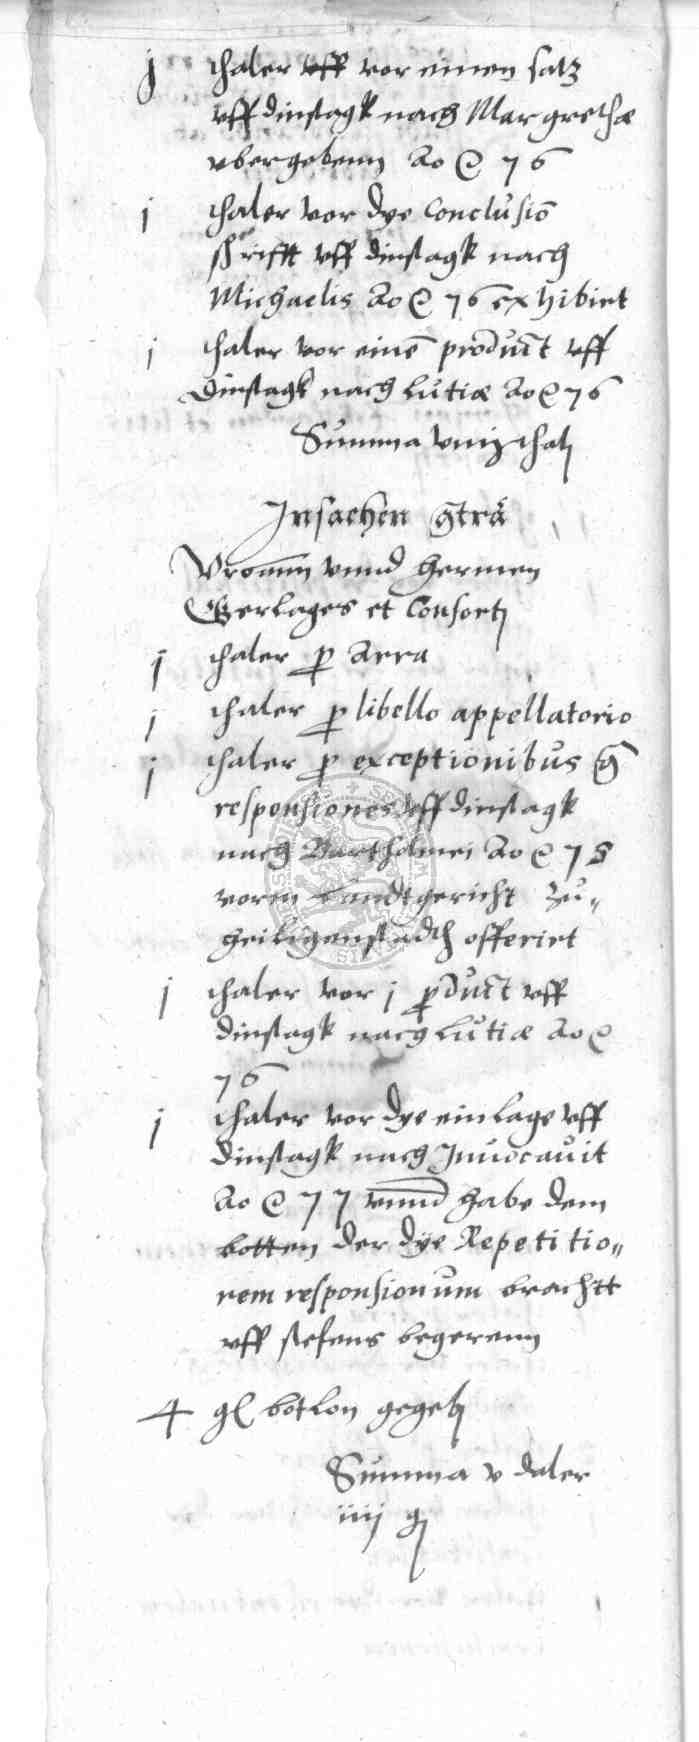 j thaler vff vor einen satz
vff dinstagk nach Margrethæ
vbergebenn Ao 76
j thaler vor dye Conclusio̅
schrifft vff dinstagk nach
Michaelis Ao 76 exhibirt
j thaler vor eine̅ product vff
Dinstagk nach Lutiæ Ao 76
Summa viij thal
In sachen
vnnd Hermen
Gerlages et Consort
j thaler p Arra
j thaler p libello appellatorio
j thaler p exceptionibus
responsiones vff dinstagk
nach Bartholmei Ao
vorm Landtgericht zu„
Heiligenstadth offerirt
j thaler vor j product vff
dinstagk nach Lutiæ Ao
76
j thaler vor dye einlage vff
dinstagk nach Invocauit
Ao 77 vnnd habe dem
botten der dye Repetitio„
nem responsionum brachtt
vff stefens begerenn
4 gl botlon gegeb
Summa v daler
iiij g